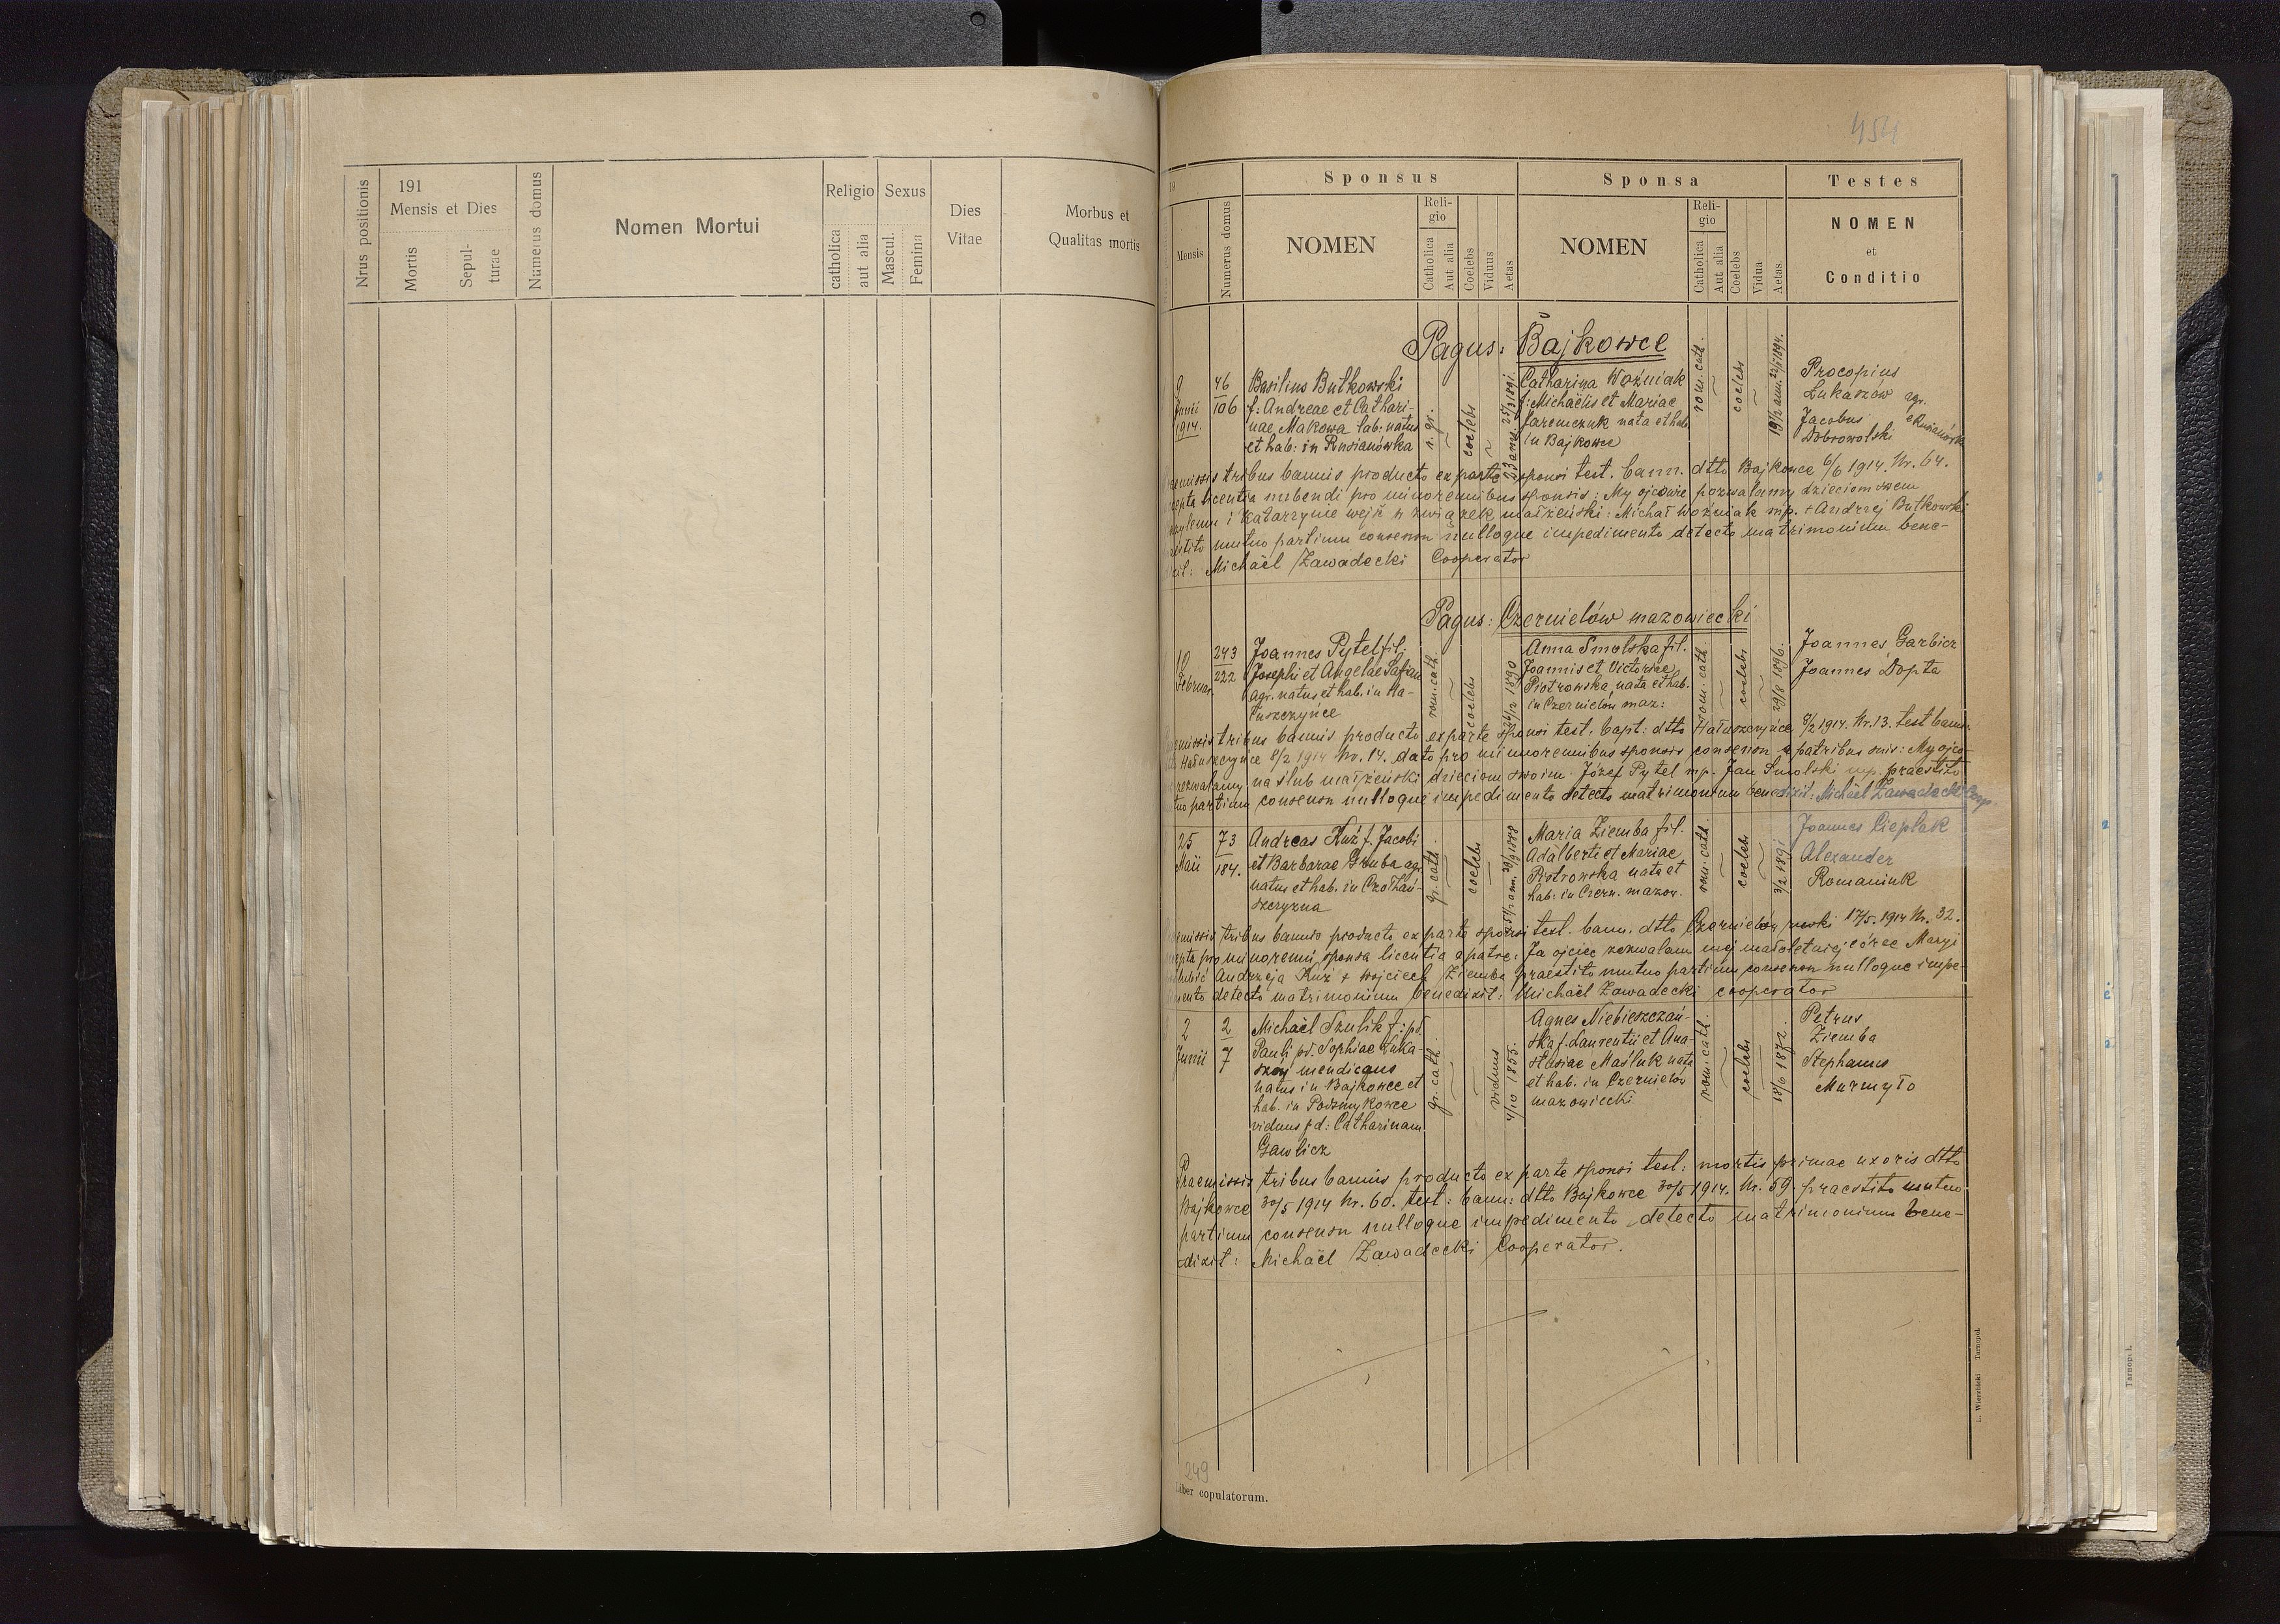 Nrus positionis
191
Mensis et Dies
Mortis
Sepul-
turae
Numerus domus
Nomen Mortui
Religio
catholica
aut alia
Sexus
Mascul.
Femina
Dies
Vitae
Morbus et
Qualitas mortis
454
19
Mensis
Numerus domus
Sponsus
NOMEN
Reli-
gio
Catholica
Aut alia
Coelebs
Viduus
Aetas
Sponsa
NOMEN
Reli-
gio
Catholica
Aut alia
Coelebs
Vidua
Aetas.
Testes
NOMEN
et
Conditio
Pagus: Bajkowce
9
Junii
1914.
46
106
Basilius Butkowski
f: Andreae et Cathari-
nae Makowa lab. natus
et hab: in Rusianówka
r. gr.
coelebs
23 ann. 25/3 1891.
Catharina Woźniak
f: Michaëlis et Mariae
Jaremczuk nata et hab
in Bajkowce
rom. cath.
coelebs
19 1/2 ann. 22/11 1894.
Procopius
Łukaszów agr.
Jacobus
Dobrowolski
e Rusianówk
tribus bannis producto ex parte sponsi test. bann. dtto Bajkowce 6/6 1914. Nr. 64.
licentia nubendi pro minorennibus sponsis: My ojcowie pozwalamy dzieciom swem
i Katarzynie wejść w związek małżeński: Michał Woźniak mp. + Andrzej Butkowski
mutuo partium consensu nulloque impedimento detecto matrimonium bene-
Michaël Zawadecki Cooperator
Pagus: Czernielów mazowiecki
10
Februar
243
222
Joannes Pytel fil:
Josephi et Angelae Safian
agr. natus et hab. in Ha-
łuszczyńce
rom. cath.
coelebs
1890
Anna Smolska fil.
Joannis et Victoriae
Piotrowska nata et hab.
in Czernielów maz:
rom. cath.
coelebs
29/8 1896.
Joannes Garbicz
Joannes Dopta
tribus bannis producto ex parte sponsi test. bapt: dtto Hałuszczyńce 8/2 1914. Nr. 13. test bann.
Hałuszczyńce 8/2 1914 Nr. 14. dato pro minorennibus sponsis consensu a patribus suis: My ojco-
zezwalamy na ślub małżeński dzieciom swoim Józef Pytel mp. Jan Smolski mp. praestito
partium consensu nulloque impedimento detecto matrimonium benedixit: Michaël Zawadecki Coop.
25
Maii
73
184.
Andreas Kuź f. Jacobi
et Barbarae Gruba agr
natus et hab. in Czołhań-
szczyzna
gr. cath.
coelebs
1888
Maria Ziemba fil.
Adalberti et Mariae
Piotrowska nata et
hab: in Czern. mazow.
rom. cath.
coelebs
3/2 1891
Joannes Cieplak
Alexander
Romaniuk
tribus bannis producto ex parte sponsi test. bann. dtto Czernielów ruski 17/5. 1914 Nr. 32.
pro minorenni sponsa licentia a patre: Ja ojciec zezwalam mej małoletniej córce Maryi
Andrzeja Kuź + Wojciech Ziemba praestito mutuo partium consensu nulloque impe-
detecto matrimonium benedixit: Michaël Zawadecki cooperator
2
Junii
2
7
Michaël Szulik f: pd.
Pauli pd. Sophiae Łuka-
szow mendicans
natus in Bajkowce et
hab. in Podsmykowce
viduus pd: Catharinam
Gawlicz
gr. cath.
viduus
4/10 1855.
Agnes Niebieszczań-
ska f. Laurentii et Ana-
stasiae Maśluk nata
et hab. in Czernielów
mazowiecki
rom. cath.
coelebs
18/6 1872.
Petrus
Ziemba
Stephanus
Murmyło
Praemissis tribus bannis producto ex parte sponsi test: mortis primae uxoris dtto
Bajkowce 30/5 1914 Nr. 60. test: bann: dtto Bajkowce 30/5 1914. Nr. 59. praestito mutuo
partium consensu nulloque impedimento detecto matrimonium bene-
dixit: Michaël Zawadecki Cooperator.
249
Liber copulatorum.
L. Wierzbicki Tarnopol.
Tarnopol.